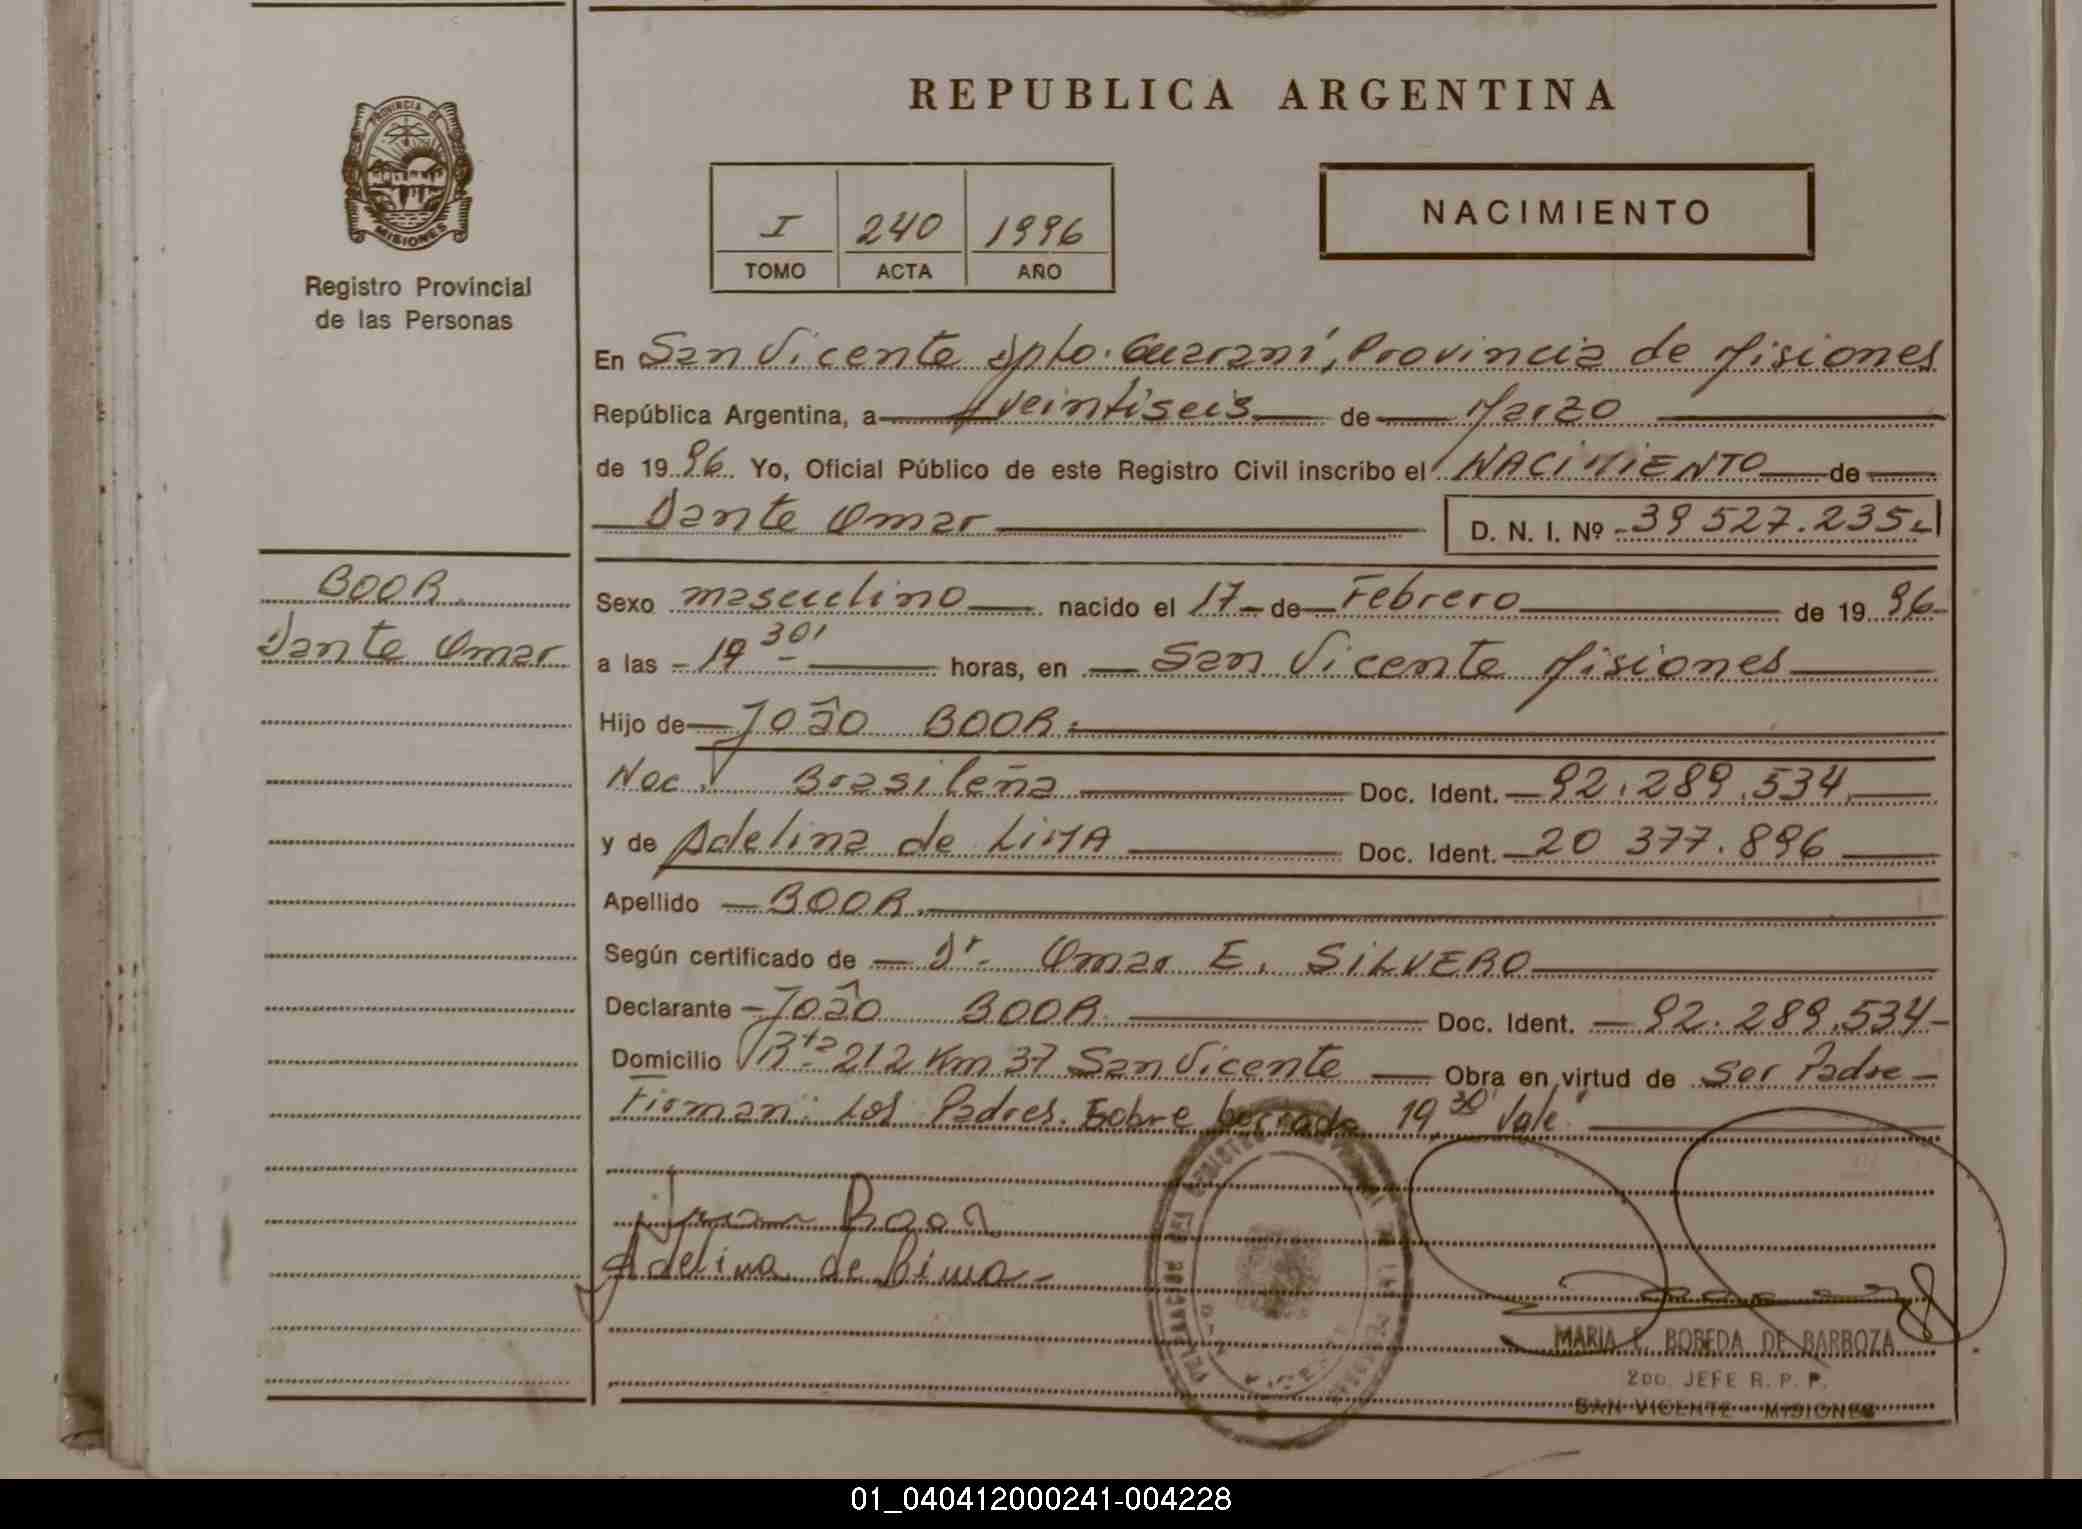 REPUBLICA ARGENTINA
PROVINCIA DE
MISIONES
Registro Provincial
de las Personas
I 240 1996
TOMO ACTA AÑO
NACIMIENTO
En San Vicente Dpto. Guaraní, Provincia de Misiones
República Argentina, a veintiseis de Marzo
de 1996 Yo, Oficial Público de este Registro Civil inscribo el NACIMIENTO de
Dante Omar D. N. I. Nº 39 527.235.-
BOOR
Dante Omar
Sexo masculino nacido el 17 de Febrero de 1996
a las 19 30' horas, en San Vicente Misiones
Hijo de João BOOR
Nac. Brasileña Doc. Ident. 92.289.534
y de Adelina de LIMA Doc. Ident. 20 377.896
Apellido BOOR
Según certificado de Dr. Omar E. SILVERO
Declarante João BOOR Doc. Ident. 92.289.534
Domicilio Rta 212 Km 37 San Vicente Obra en virtud de ser Padre
Firman: Los Padres. Sobre borrado 19 30' Vale
Boor
Adelina de Lima
MARIA E. BOBEDA DE BARBOZA
2DO. JEFE R. P. P.
SAN VICENTE - MISIONES
01_040412000241-004228